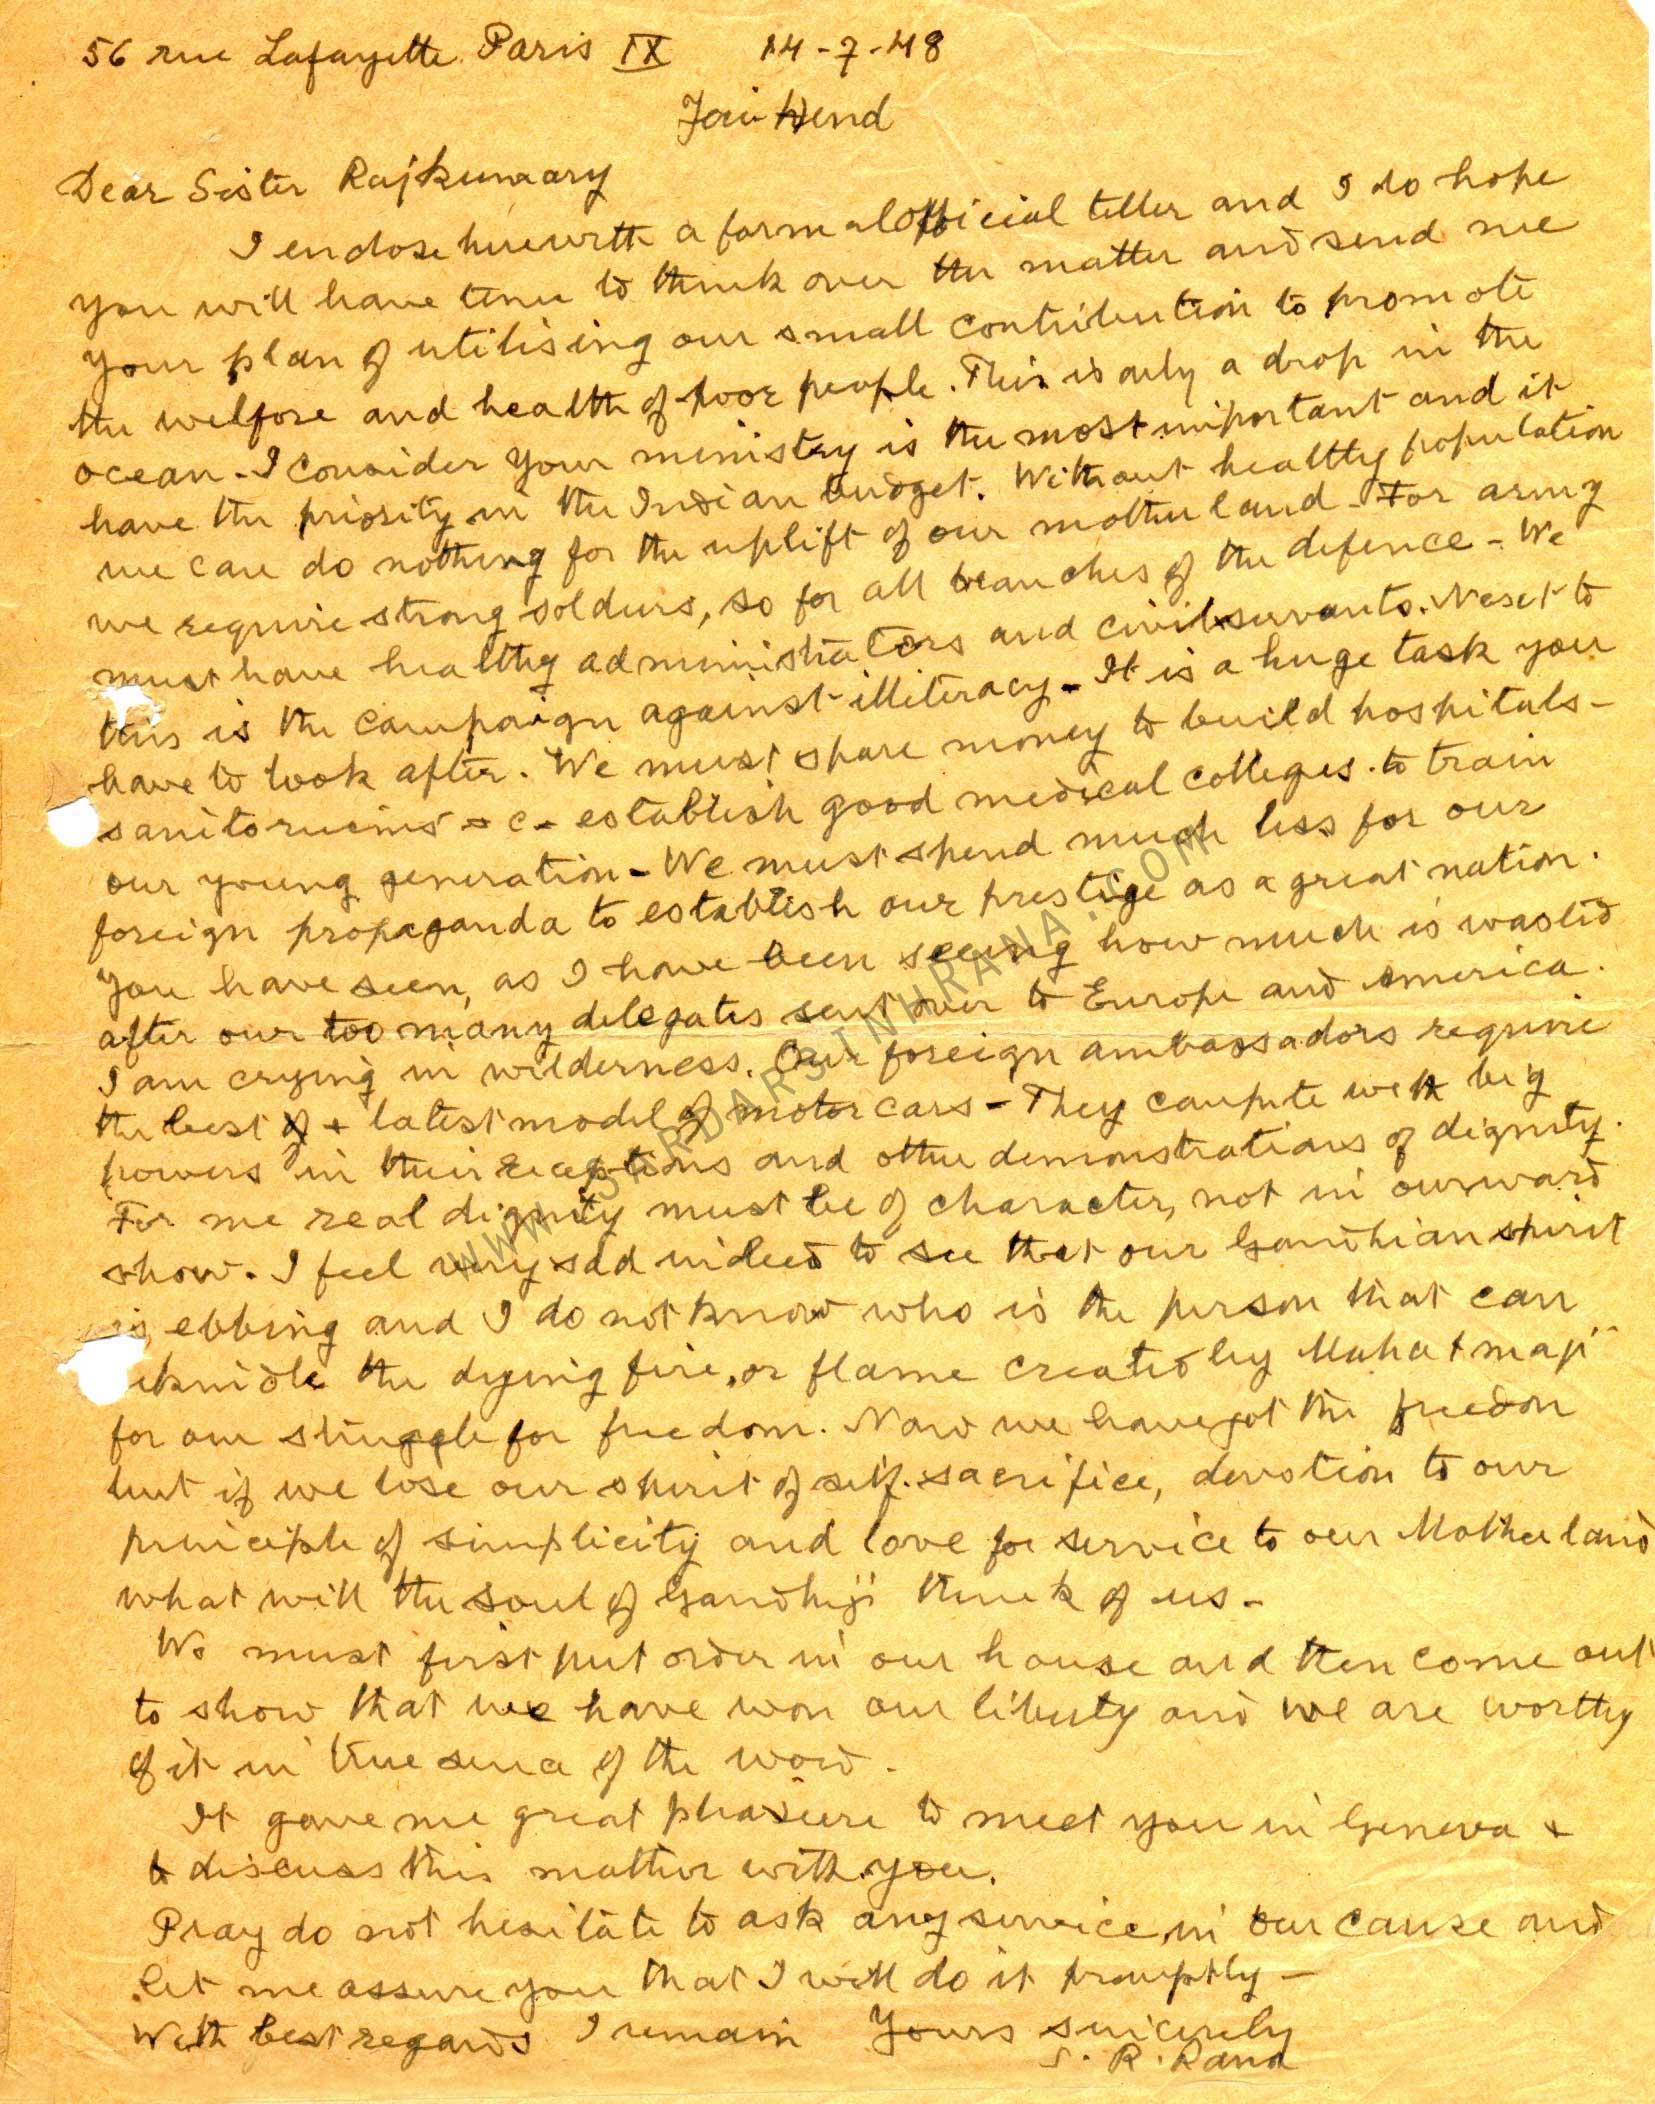 56 rue Lafayette Paris IX 14-7-48
Jai-Hind
Dear Sister Rajkumary
I enclose herewith a formal official letter and I do hope
you will have time to think over the matter and send me
your plan of utilising our small contribution to promote
the welfare and health of poor people. This is only a drop in the
ocean - I consider your ministry is the most important and it
have the priority in the Indian budget. Without healthy population
we can do nothing for the uplift of our motherland - For army
we require strong soldiers, so for all branches of the defence - We
must have healthy administrators and civil servants. Next to
this is the campaign against illiteracy - It is a huge task you
have to look after. We must spare money to build hospitals -
sanitoriums & c - establish good medical colleges to train
our young generation - We must spend much less for our
foreign propaganda to establish our prestige as a great nation.
You have seen, as I have been seeing how much is wasted
after our too many delegates sent over to Europe and America.
I am crying in wilderness. Our foreign ambassadors require
the best & latest model of motor cars - They compete with big
powers in their receptions and other demonstrations of dignity.
For me real dignity must be of character, not in ourward
show. I feel very sad indeed to see that our Gandhian spirit
is ebbing and I do not know who is the person that can
the dying fire, or flame created by Mahatmaji
for our struggle for freedom. Now we have got the freedon
but if we lose our spirit of self-sacrifice, devotion to our
principle of simplicity and love for service to our Motherland
what will the soul of Gandhiji think of us -
We must first put order in our house and then come out
to show that we have won our liberty and we are worthy
of it in true sence of the word.
It gave me great pleasure to meet you in Geneva &
to discuss this matter with you.
Pray do not hesitate to ask any service in our cause and
let me assure you that I will do it promptly -
With best regards I remain Yours sincerely
S. R. Rana
WWW.SARDARSINHRANA.COM